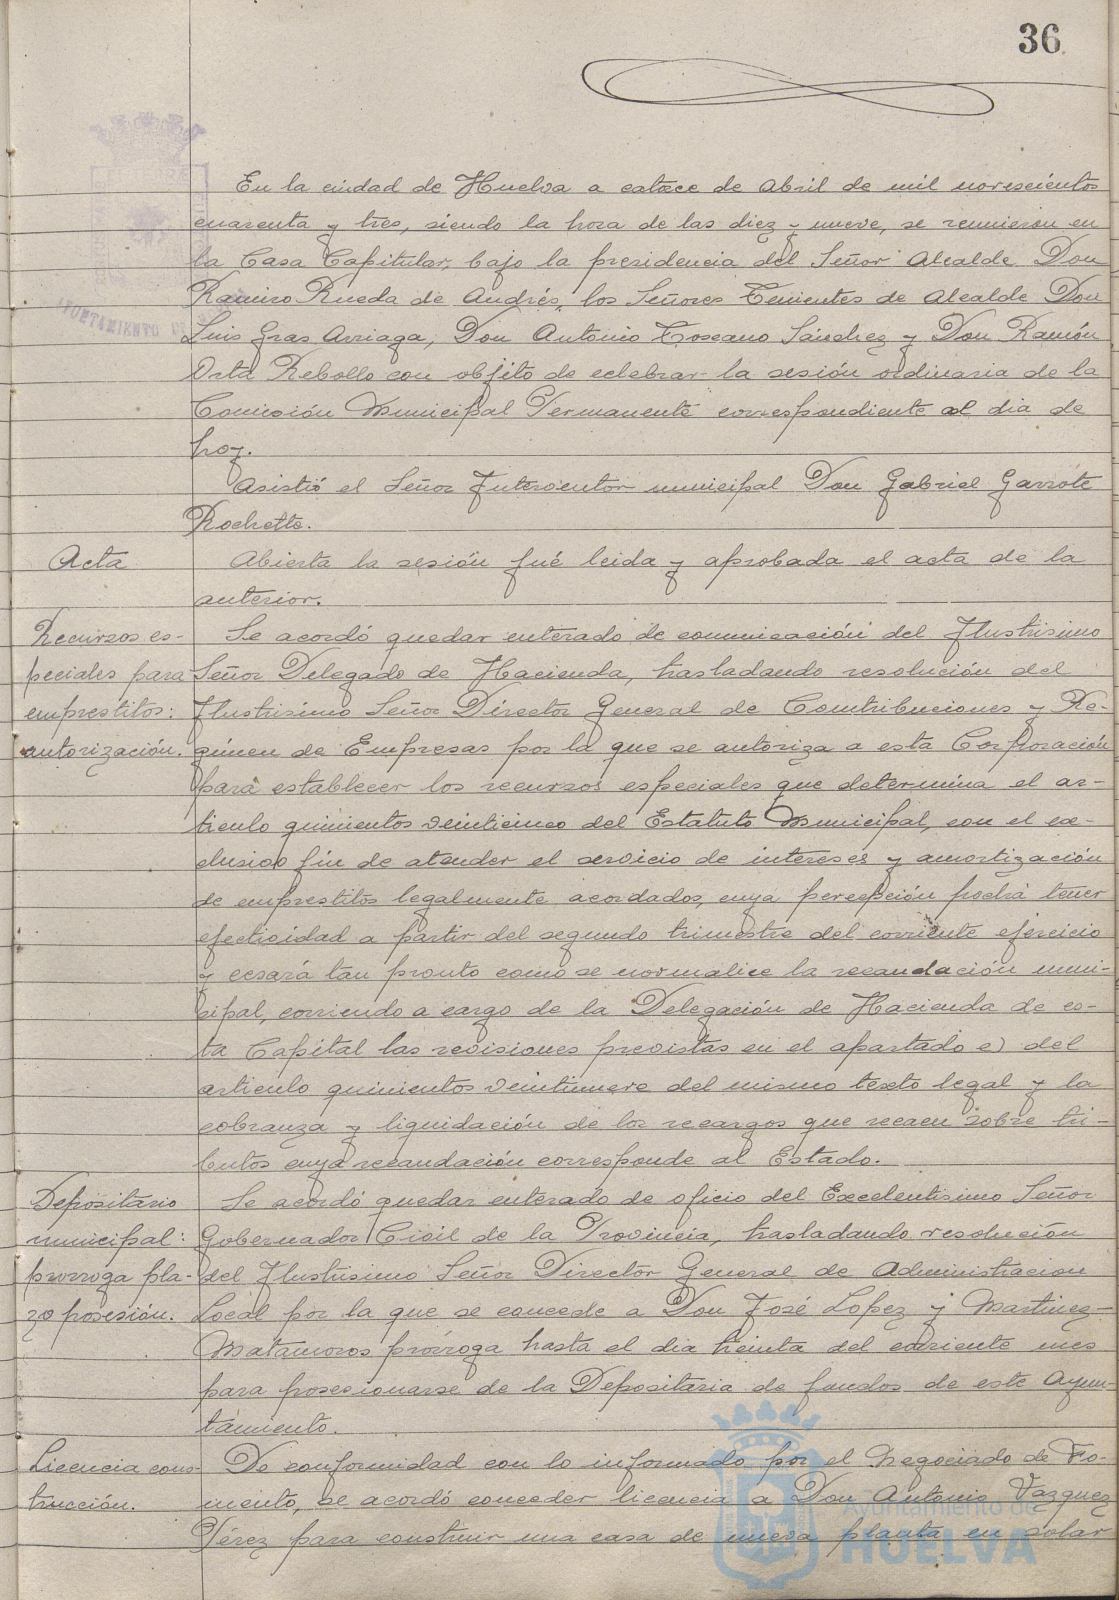 36
En la ciudad de Huelva a catorce de Abril de mil novescientos
cuarenta y tres, siendo la hora de las diez y nueve, se reunieron en
la Casa Capitular, bajo la presidencia del Señor Alcalde Don
Ramiro Rueda de Andrés, los Señores Tenientes de Alcalde Don
Luis Gras Arriaga, Don Antonio Toscano Sánchez y Don Ramón
Orta Rebollo con objeto de celebrar la sesión ordinaria de la
Comisión Municipal Permanente correspondiente al dia de
hoy.
Asistió el Señor Interventor municipal Don Gabriel Garrote
Rochette.
Acta
Abierta la sesión fué leida y aprobada el acta de la
anterior.
Recursos es-
peciales para
emprestitos:
autorización.
Se acordó quedar enterado de comunicación del Ilustrisimo
Señor Delegado de Hacienda, trasladando resolución del
Ilustrisimo Señor Director General de Contribuciones y Ré-
gimen de Empresas por la que se autoriza a esta Corporación
para establecer los recursos especiales que determina el ar-
ticulo quinientos veinticinco del Estatuto Municipal, con el ex-
clusivo fin de atender el servicio de intereses y amortización
de emprestitos legalmente acordados, cuya percepción podrá tener
efectividad a partir del segundo trimestre del corriente ejercicio
y cesará tan pronto como se normalice la recaudación muni-
cipal, corriendo a cargo de la Delegación de Hacienda de es-
ta Capital las revisiones previstas en el apartado e) del
articulo quinientos veintinueve del mismo texto legal y la
cobranza y liquidación de los recargos que recaen sobre tri-
butos cuya recaudación corresponde al Estado.
Depositario
municipal:
prorroga pla-
zo posesión.
Se acordó quedar enterado de oficio del Excelentisimo Señor
Gobernador Civil de la Provincia, trasladando resolución
del Ilustrisimo Señor Director General de Administracion
Local por la que se concede a Don José Lopez y Martinez-
Matamoros prórroga hasta el dia treinta del corriente mes
para posesionarse de la Depositaria de fondos de este Ayun-
tamiento.
Licencia cons-
trucción.
De conformidad con lo informado por el Negociado de Fo-
mento, se acordó conceder licencia a Don Antonio Vazquez
Pérez para construir una casa de nueva planta en solar
Ayuntamiento de
HUELVA
AYUNTAMIENTO DE